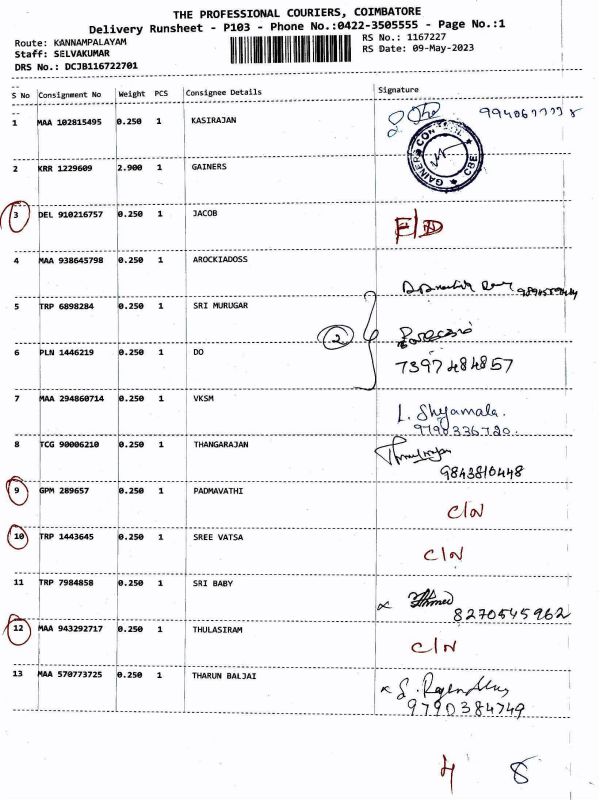 THE PROFESSIONAL COURIERS, COIMBATORE
Delivery Runsheet - P103 - Phone No.:0422-3505555 - Page No.:1
Route: KANNAMPALAYAM
Staff: SELVAKUMAR
DRS No.: DCJB116722701
RS No.: 1167227
RS Date: 09-May-2023
S No Consignment No Weight PCS Consignee Details Signature
1 MAA 102815495 0.250 1 KASIRAJAN
2 KRR 1229609 2.900 1 GAINERS
GAINERS CBE
3 DEL 910216757 0.250 1 JACOB F/D
4 MAA 938645798 0.250 1 AROCKIADOSS
5 TRP 6898284 0.250 1 SRI MURUGAR
2
6 PLN 1446219 0.250 1 DO 7397484857
7 MAA 294860714 0.250 1 VKSM L. Shyamala.
9790336720.
8 TCG 90006210 0.250 1 THANGARAJAN
9843810448
9 GPM 289657 0.250 1 PADMAVATHI C/N
10 TRP 1443645 0.250 1 SREE VATSA C/N
11 TRP 7984858 0.250 1 SRI BABY
8270545962
12 MAA 943292717 0.250 1 THULASIRAM C/N
13 MAA 570773725 0.250 1 THARUN BALJAI
9790384749
4 8